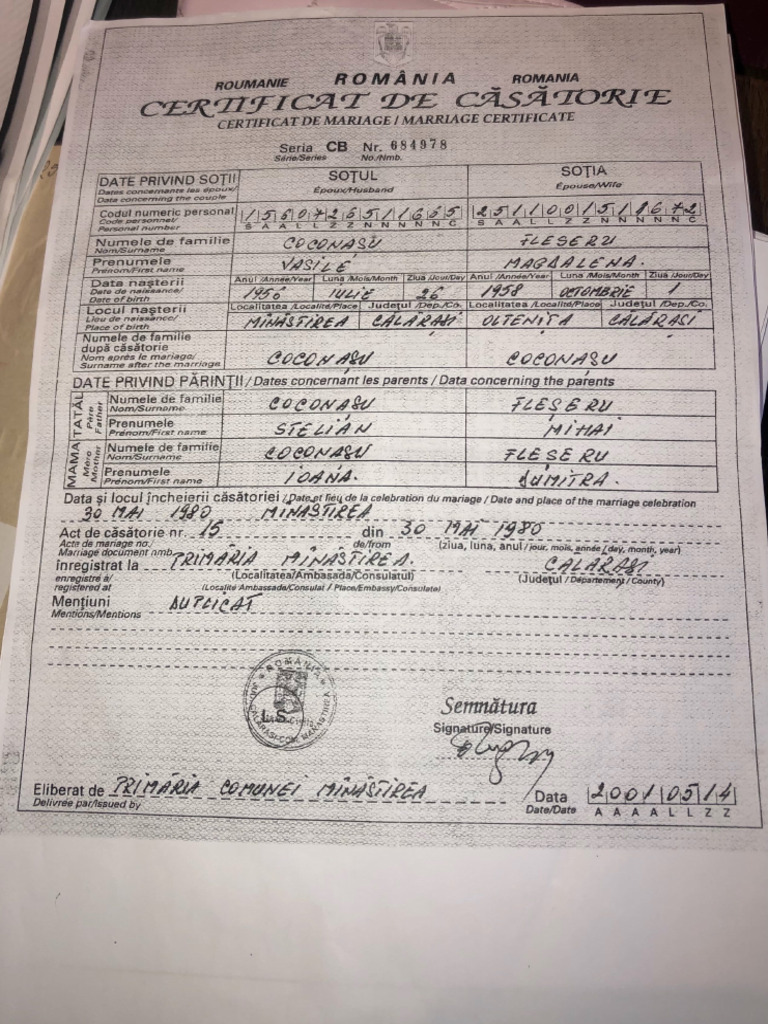 ROUMANIE ROMÂNIA ROMANIA
CERTIFICAT DE CĂSĂTORIE
CERTIFICAT DE MARIAGE / MARRIAGE CERTIFICATE
Seria CB Nr. 684978
Série/Series No./Nmb.
DATE PRIVIND SOȚII SOȚUL SOȚIA
Dates concernantes les époux/ Époux/Husband Épouse/Wife
Data concerning the couple
Codul numeric personal 1560726511665 2511001511672
Code personnel/ S A A L L Z Z N N N N N C S A A L L Z Z N N N N N C
Personal number
Numele de familie COCONAȘU FLEȘERU
Nom/Surname
Prenumele VASILE MAGDALENA.
Prénom/First name
Data nașterii Anul /Année/Year Luna /Mois/Month Ziua /Jour/Day Anul /Année/Year Luna /Mois/Month Ziua /Jour/Day
Date de naissance/ 1956 IULIE 26 1958 OCTOMBRIE 1
Date of birth
Locul nașterii Localitatea /Localité/Place Județul /Dep./Co. Localitatea /Localité/Place Județul /Dep./Co.
Lieu de naissance/ MÎNĂSTIREA CĂLĂRAȘI OLTENIȚA CĂLĂRAȘI
Place of birth
Numele de familie
după căsătorie
Nom après le mariage/ COCONAȘU COCONAȘU
Surname after the marriage
DATE PRIVIND PĂRINȚII / Dates concernant les parents / Data concerning the parents
TATĂL Père Father
Numele de familie COCONAȘU FLEȘERU
Nom/Surname
Prenumele STELIAN MIHAI
Prénom/First name
MAMA Mère Mother
Numele de familie COCONAȘU FLEȘERU
Nom/Surname
Prenumele IOANA. DUMITRA.
Prénom/First name
Data și locul încheierii căsătoriei / Date et lieu de la celebration du mariage / Date and place of the marriage celebration
30 MAI 1980 MÎNĂSTIREA
Act de căsătorie nr. 15 din 30 MAI 1980
Acte de mariage no./ de/from (ziua, luna, anul / jour, mois, année / day, month, year)
Marriage document nmb.
înregistrat la PRIMĂRIA MÎNĂSTIREA. CĂLĂRAȘI
enregistré à/ (Localitatea/Ambasada/Consulatul) (Județul / Département / County)
registered at (Localité Ambassade/Consulat / Place/Embassy/Consulate)
Mențiuni DUPLICAT
Mentions/Mentions
ROMÂNIA
L.S.
Semnătura
Signature/Signature
Eliberat de PRIMĂRIA COMUNEI MÎNĂSTIREA Data 2001 05 14
Delivrée par/Issued by Date/Date A A A A L L Z Z